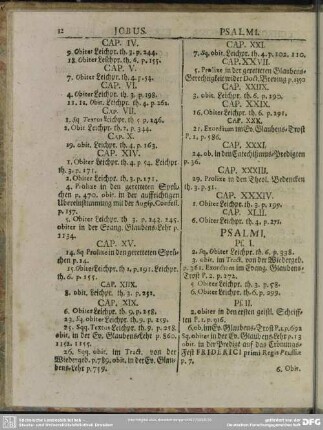 12 JOBUS. PSALMI.
CAP. IV.
9. Obiter Leichpr. th. 3. p. 244.
18. Obiter Leichpr. th. 6. p. 155.
CAP. V.
7. Obiter Leichpr. th. 4. p. 54.
CAP. VI.
4. Obiter Leichpr. th. 3. p. 198.
11. 12. Obit. Leichpr. th. 4. p. 261.
CAP. VII.
1. sq. Textus Leichpr. th. p. 146.
2. Obit Leichpr. th. 1. p. 344.
CAP. X.
19. obit. Leichpr. th. 4. p. 163.
CAP. XIV.
1. Obiter Leichpr. th. 4. p. 54. Leichpr.
th. 3. p. 171.
2. Obiter Leichpr. th. 3. p. 171.
4. Prolixe in den geretteten Sprü-
chen p. 470. obit. in der auffrichtigen
Ubereinstimmung mit der Augsp. Confess.
p. 157.
5. Obiter Leichpr. th. 3. p. 242. 245.
obiter in der Evang. Glaubens-Lehr p.
2134.
CAP. XV.
14. Sq Prolixe in den geretteten Sprü-
chen p. 14.
15 Obiter Leichpr. th 2. p. 191. Leichpr.
th. 6. p. 155.
CAP. XIIX.
8. obit. Leichpr. th. 3. p. 251.
CAP. XIX.
6. Obiter Leichpr. th. 9. p. 258.
23. Sq. obiter Leichpr. th. 9. p. 259.
25. Sqq. Textus Leichpr. th. 9. p. 258.
obit. in der Ev. Glaubens-Lehr p. 560.
1352. 1155.
26. Sqq. obit. im Tract. von der
Wiedergeb. p. 789. obit. in der Ev. Glau-
bens-Lehr p. 759.
CAP. XXI.
7. Sq. obit. Leichpr. th. 4. p. 102. 110.
CAP. XXVII.
5. Prolixe in der geretteten Glaubens-
Gerechtigkeit wider Doct. Breving p. 1350
CAP. XXIIX.
3. obit. Leichpr. th. 6. p. 190.
CAP. XXIX.
16. Obiter Leichpr. th. 6. p. 291.
CAP. XXX.
21. Exordium im Ev. Glaubens-Trost
P. 1. p. 586.
CAP. XXXI.
24. ob. in den Catechismus-Predigten
p. 56.
CAP. XXXIII.
29. Prolixe in den Theol. Bedencken
th. 3. p. 31.
CAP. XXXIV.
1. Obiter Leichpr. th. 3. p. 199.
CAP. XLII.
6. Obiter Leichpr. th. 4. p. 271.
PSALMI,
PS. I.
2. Sq. Obiter Leichpr. th. 6. p. 338.
3. obit. im Tract. von der Wiedergeb.
p. 361. Exordium im Evang. Glaubens-
Trost P. 2. p. 272.
5. Obiter Leichpr. th. 3. p. 58.
6. Obiter Leichpr. th. 6. p. 299.
PS. II.
2. obiter in den ersten geistl. Schriff-
ten P. 1. p. 916.
6. ob. im Ev. Glaubens-Trost P. 2. p. 692
Sq. obiter in der Ev. Glaubens-Lehr p. 13
10. obit. in der Predigt auf das Crönungs-
Fest FRIDERICI primi Regis Prussiæ
p. 7.
6. Obit.